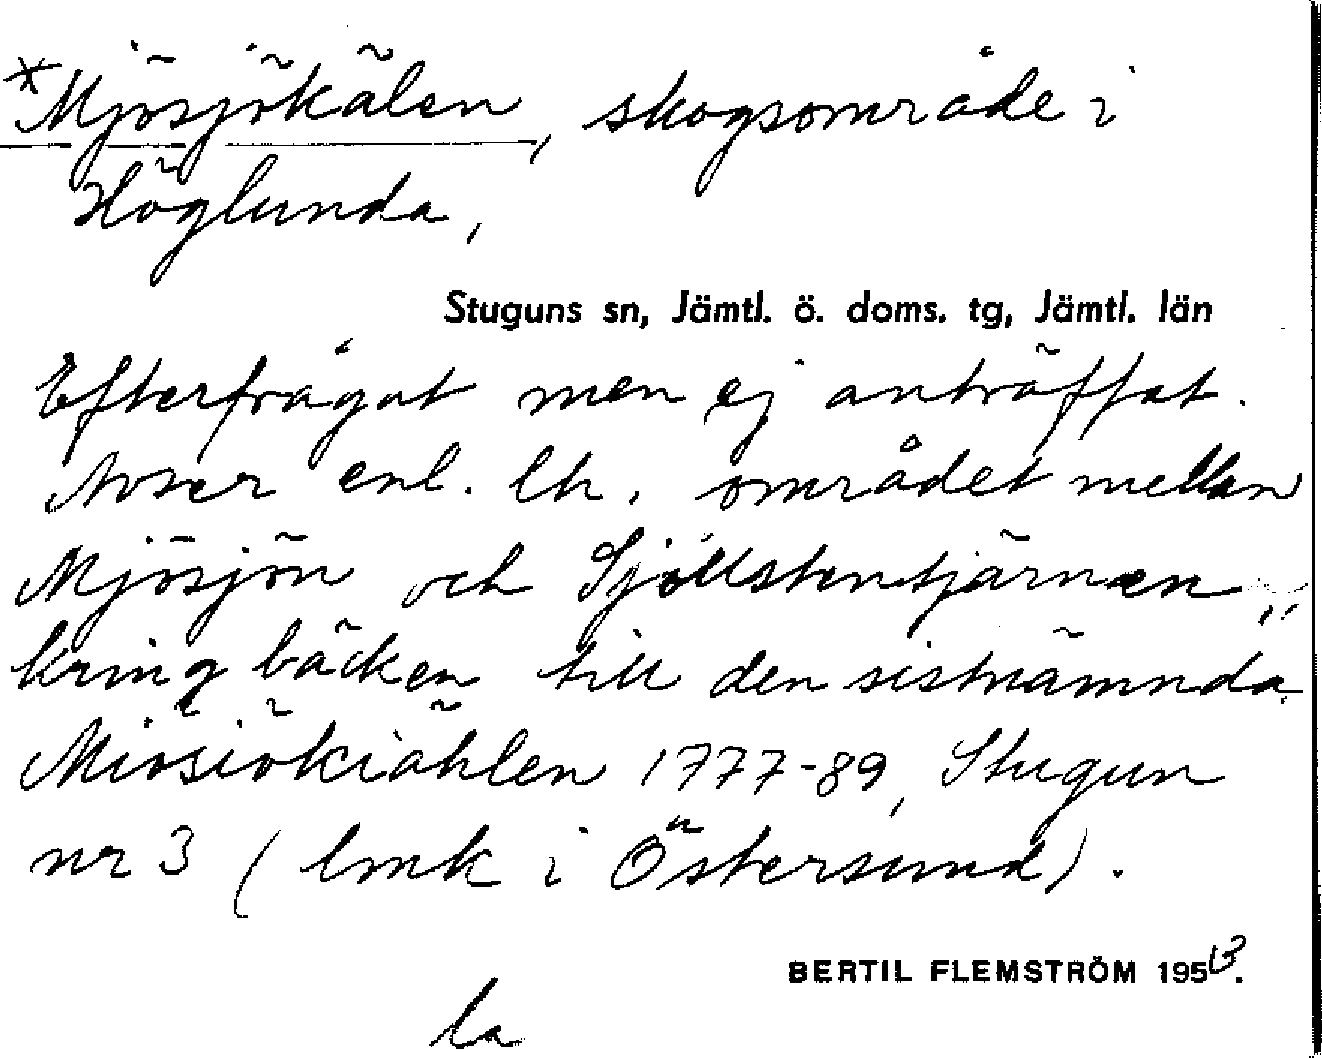 *Mjösjökälen, skogsområde i
Höglunda,
Stuguns sn, Jämtl. ö. doms. tg, Jämtl. län
Efterfrågat men ej anträffat.
Avser enl. lh. området mellan
Mjösjön och Sjöllstentjärnen,
kring bäcken till den sistnämnda.
Miösiökiählen 1777-89, Stugun
nr 3 (lmk i Östersund).
BERTIL FLEMSTRÖM 1953.
la